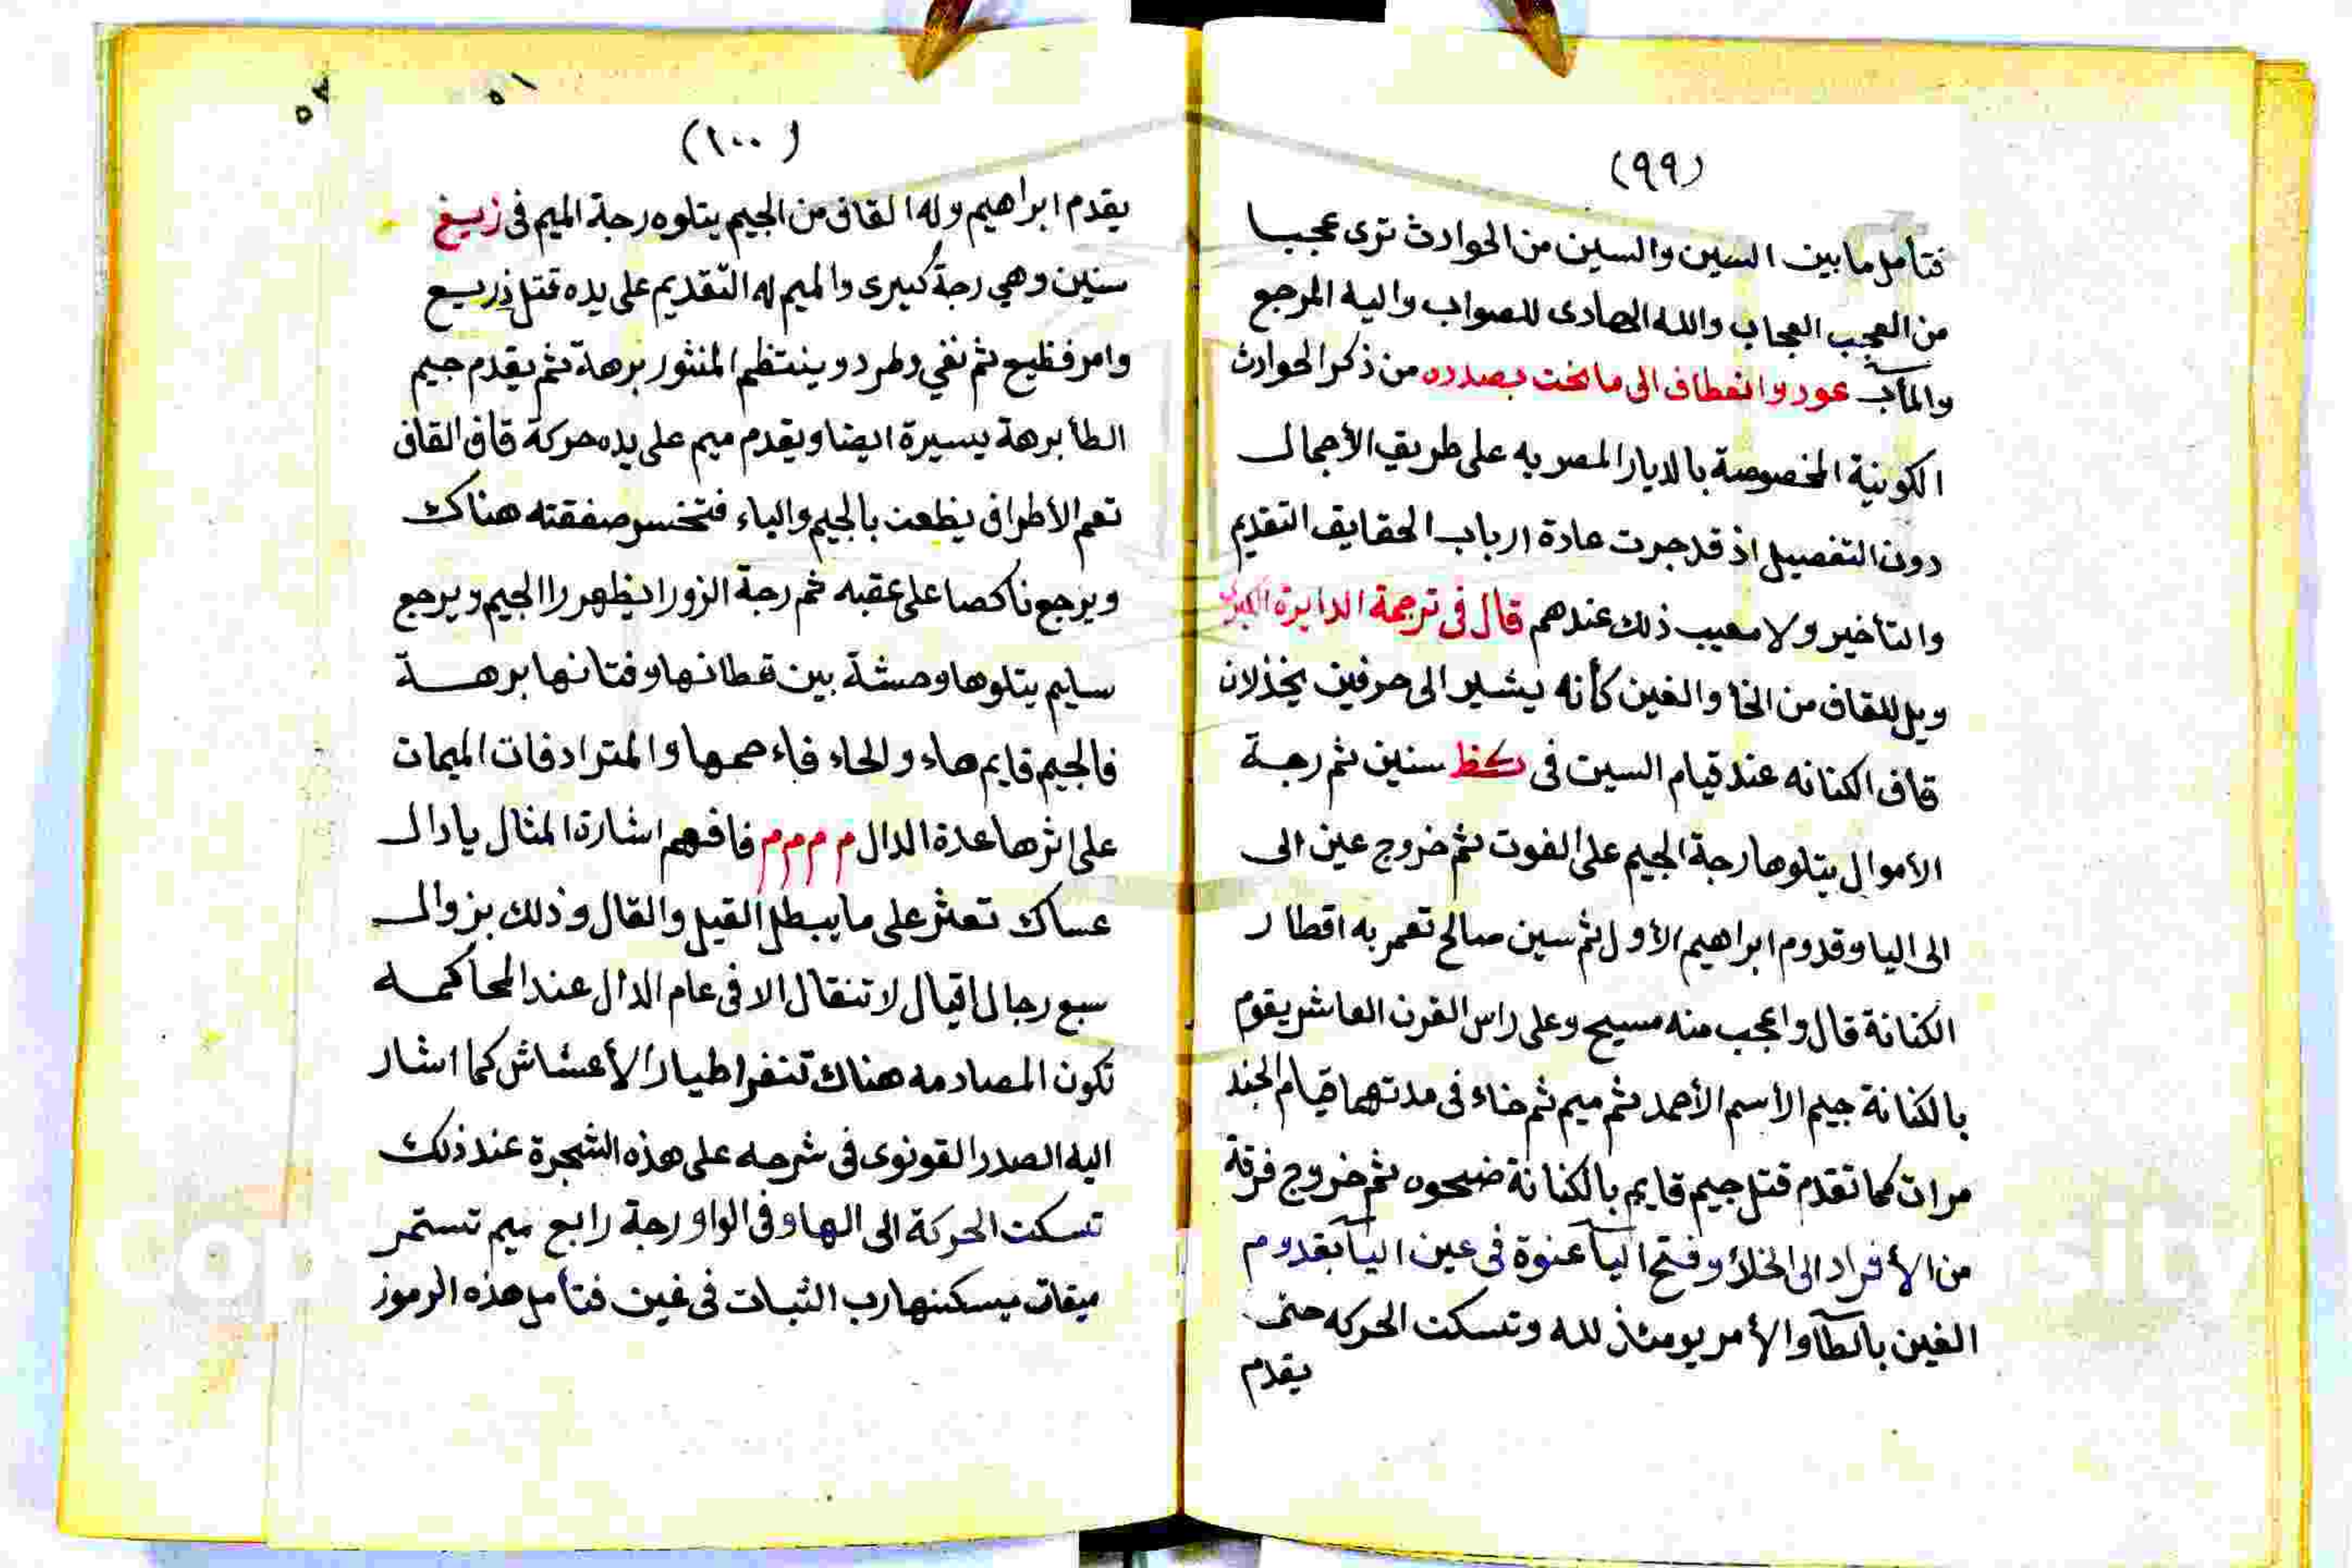 (٩٩)
فتأمل ما بين السين والسين من الحوادث ترى عجبا
من العجب العجاب والله الهادى للصواب واليه المرجع
والمآب عود وانعطاف الى ما نحن بصدده من ذكر الحوادث
الكونية المخصوصة بالديار المصريه على طريق الأجمال
دون التفصيل اذ قد جرت عادة ارباب الحقايق التقديم
والتأخير ولا معيب ذلك عندهم قال فى ترجمة الدايرة الكبرى
ويل للقاف من الخا والغين كأنه يشير الى حرفين يخذلان
قاف الكنانه عند قيام السين فى كظ سنين ثم رجة
الأموال يتلوها رجة الجيم على الفوت ثم خروج عين الى
الى اليا وقدوم ابراهيم الأول ثم سين صالح تعمر به اقطار
الكنانة قال واعجب منه مسيح وعلى راس القرن العاشر يقوم
بالكنانة جيم الأسم الأحمد ثم ميم ثم خاء فى مدتهما قيام الجند
مرات كما تقدم قتل جيم قايم بالكنانة ضحوه ثم خروج فرقة
من الأفراد الى الخلا وفتح اليآ عنوة فى عين اليآ بقدوم
الغين بالطآ والأمر يومئذ لله وتسكن الحركه حتى
يقدم
(١٠٠)
يقدم ابراهيم وله القاف من الجيم يتلوه رجة الميم فى زيغ
سنين وهي رجة كبيرى والميم له التقديم على يده قتل ذريع
وامر فظيع ثم نفي وطرد وينتظم المنثور برهة ثم يقدم جيم
الطا برهة يسيرة ايضا ويقدم ميم على يده حركة قاف القاف
تعم الأطراف يظعن بالجيم والياء فتخسر صفقته هناك
ويرجع ناكصا على عقبه ثم رجة الزورا يظهر را الجيم ويرجع
سليم يتلوها وحشة بين قطانها وفتانها برهة
فالجيم قايم هاء والحاء فاء حمها والمترادفات الميمات
على اثرها عدة الدال م م م م فافهم اشارة المثال يا دال
عساك تعثر على ما يبطل القيل والقال وذلك بزوال
سبع رجال اقيال لا تنقال الا فى عام الدال عند المحاكمه
تكون المصادمه هناك تنفر اطيار الأعشاش كما اشار
اليه الصدر القونوى فى شرحه على هذه الشجرة عند ذلك
تسكن الحركة الى الها وفى الواو رجة رابع ميم تستمر
ميقات يسكنها رب الثبات فى غين فتأمل هذه الرموز